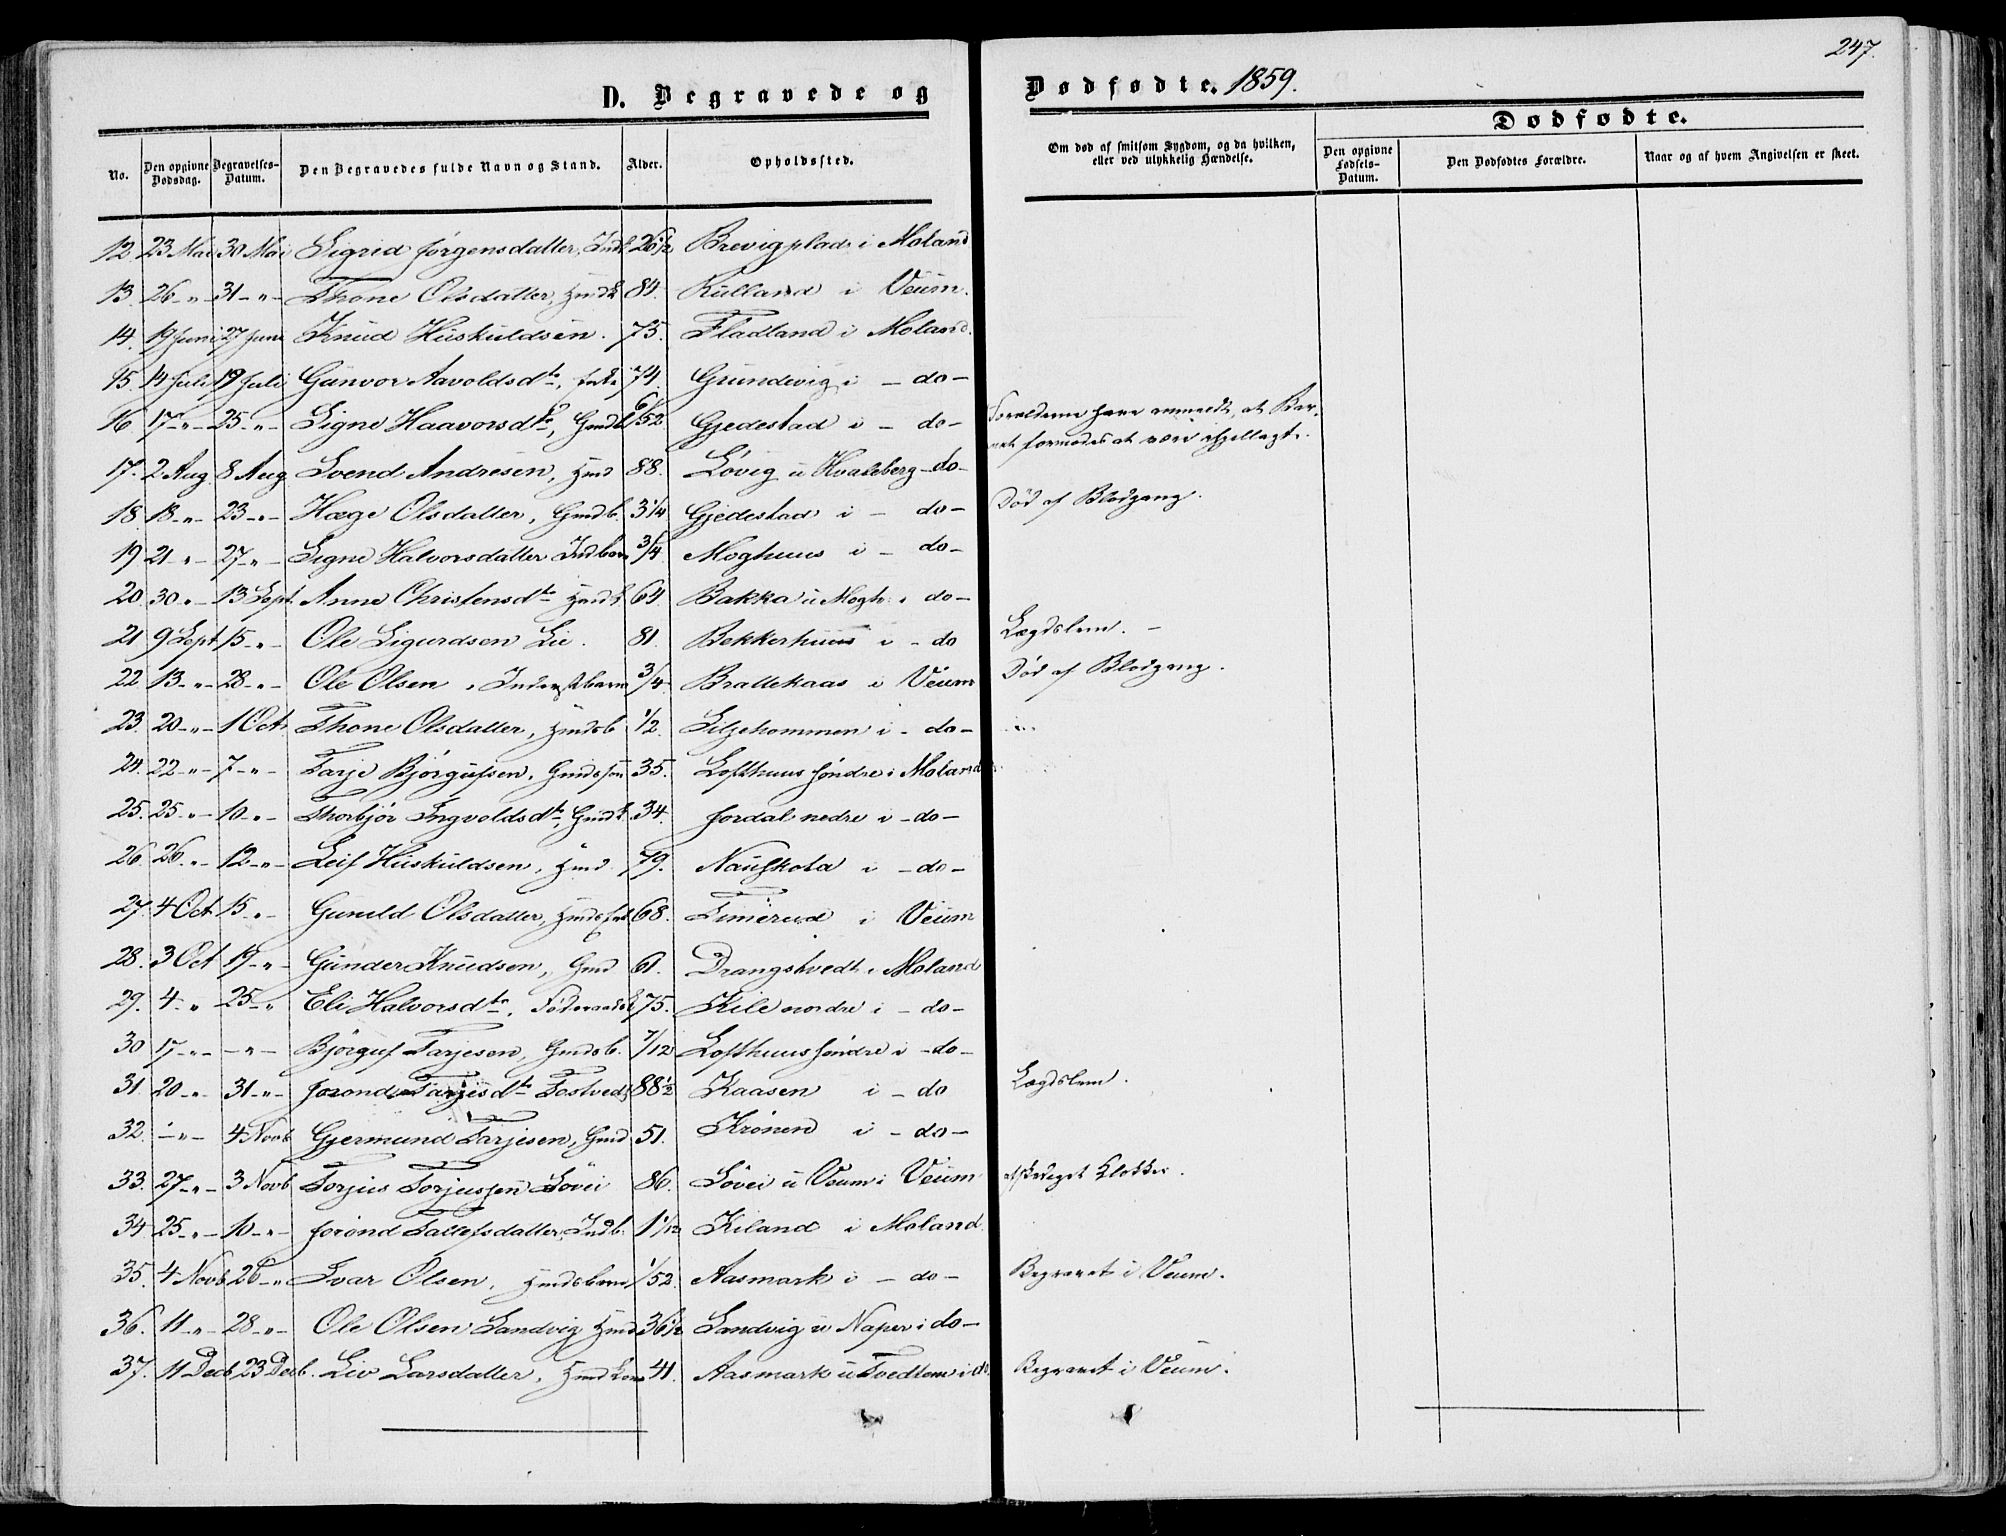 247.
D. Begravede og Dødfødte. 1859.
Dødfødte.
No.
Den opgivne Dødsdag.
Begravelses-Datum.
Den Begravedes fulde Navn og Stand.
Alder.
Opholdssted.
Om død af smitsom Sygdom, og da hvilken, eller ved ulykkelig Hændelse.
Den opgivne Fødsels-Datum.
Den Dødfødtes Forældre.
Naar og af hvem Angivelsen er skeet.
12. 23 Mai 30 Mai Sigrid Jørgensdatter, 26 1/2 Brevigplads i Moland
13. 26 -"- 31 -"- Thone Olsdatter, 84. Rulland i Veum.
14. 19 Juni 27 Juni Knud Huskuldsen. 75. Fladland i Moland.
15. 14 Juli 19 Juli Gunvor Aavoldsdtr, 74. Grundevig i - do -
16 17 -"- 25 -"- Signe Haavorsdtr, 6/52 Gjedestad i - do - Forældrene have anmeldt, at Bar-
net formodes at være ihjellagt.
17. 2 Aug 8 Aug Svend Andresen, Hmd 88. Løvig u Hvaleberg - do -
18. 18 -"- 23 -"- Hæge Olsdatter, Gmdb. 3 1/4 Gjedestad i - do - Død af Blodgang.
19 21 -"- 27 -"- Signe Halvorsdatter Indbarn 3/4 Moghuus i - do -
20. 30 -"- 13 Sept. Anne Christensdtr 64 Bakka u Mogh. i do -
21 9 Sept 15 -"- Ole Sigurdsen Lie. 81. Bekkerhuus i - do Lægdslem. -
22 13 -"- 28 -"- Ole Olsen, Inderstbarn 3/4 Brattekaas i Veum Død af Blodgang.
23. 20 -"- 1 Oct. Thone Olsdatter, Hmdsb 1/2. i - do -
24. 22 -"- 7 -"- Tarje Bjørgufsen, Gmdssøn 35. Lofthuus søndre i Moland
25. 25 -"- 10 -"- Thorbjør Ingvoldsdtr, 34. Jordal nedre i - do -
26 26 -"- 12 -"- Leif Huskuldsen, Hmd 79. Nauskota i - do -
27. 4 Oct 15 -"- Gunild Olsdatter, 68. Timerud i Veum
28. 3 Oct 19 -"- Gunder Knudsen, Gmd 61. Drangstvedt i Moland
29. 4 -"- 25 -"- Eli Halvorsdtr, 75. Kile nordre i - do -
30 17 -"- -"- Bjørguf Tarjesen, Gmdsb. 7/12 Lofthuus søndre i - do -
31. 20 -"- 31 -"- Jorond Tarjesdtr Tostvedt 88 1/2 Kaasen i - do Lægdslem.
32. -"- 4 Novb Gjermund Tarjesen, Gmd 51. Krónen i - do -
33. 27 -"- 3 Novb Torjus Torjussen Løvei 86. Løvei u Veum i Veum afskediget Klokker.
34 25 -"- 10 -"- Jorond Tallefsdatter, Indb. 1 1/12 Kiland i Moland.
35. 4 Novb 26 -"- Ivar Olsen, Hmdsbarn 1/52. Aasmark i - do - Begravet i Veum.
36. 11 -"- 28 -"- Ole Olsen Sandvig Hmd 36 1/2 Sandvig u Naper i do -
37. 11 Decb 23 Decb. Liv Larsdatter, Hmdkone 41. Aasmark u Tvedtom i do Begravet i Veum.